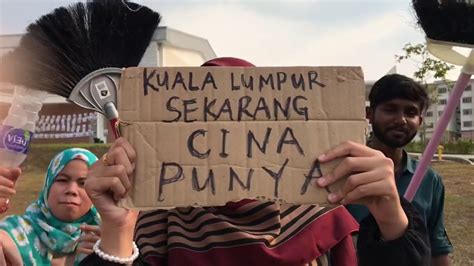 KUALA LUMPUR
SEKARANG
CINA
PUNYA